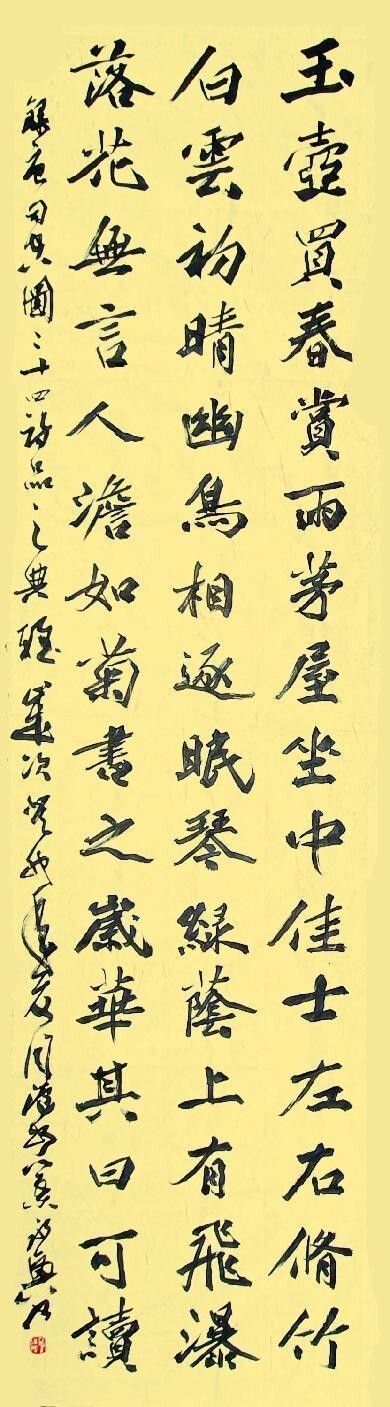 玉壺買春賞雨茅屋坐中佳士左右脩竹
白雲初晴幽鳥相逐眠琴綠蔭上有飛瀑
落花無言人澹如菊書之歲華其曰可讀
錄唐司空圖二十四詩品之典雅歲次癸巳年